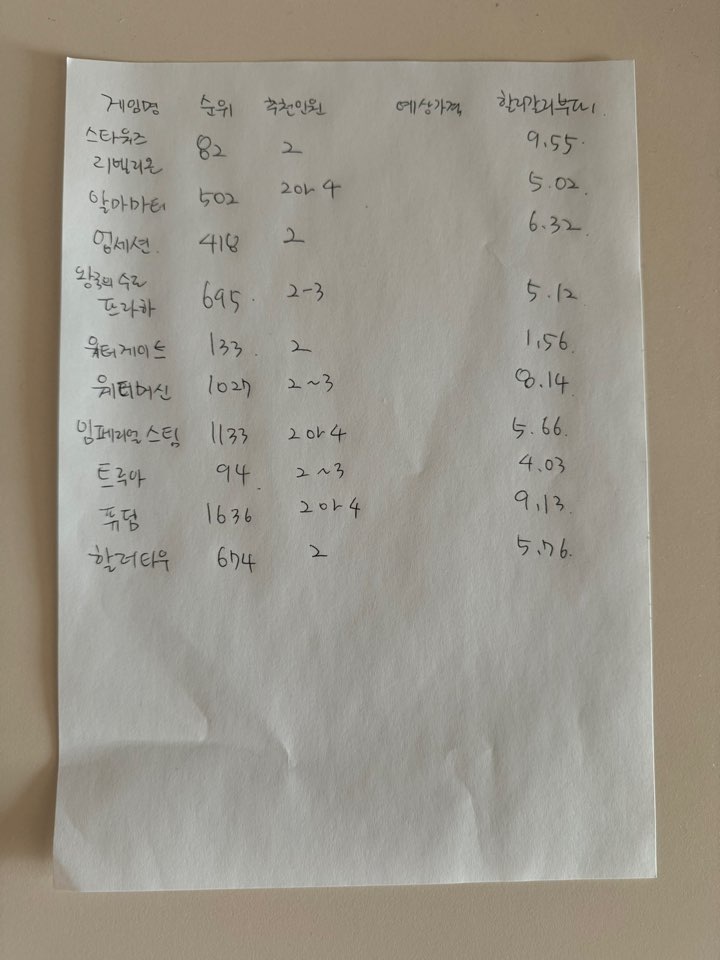 게임명 순위 추천인원 예상가격 할리갈리부터
스타워즈 리벨리온 82 2 9.55
알마마터 502 2아4 5.02
업세션 418 2 6.32
왕국의 수도 프라하 695 2-3 5.12
워터게이트 133 2 1.56
웨더머신 1027 2~3 8.14
임페리얼 스팀 1133 2아4 5.66
트루아 94 2~3 4.03
퓨덤 1636 2아4 9.13
할러타우 674 2 5.76